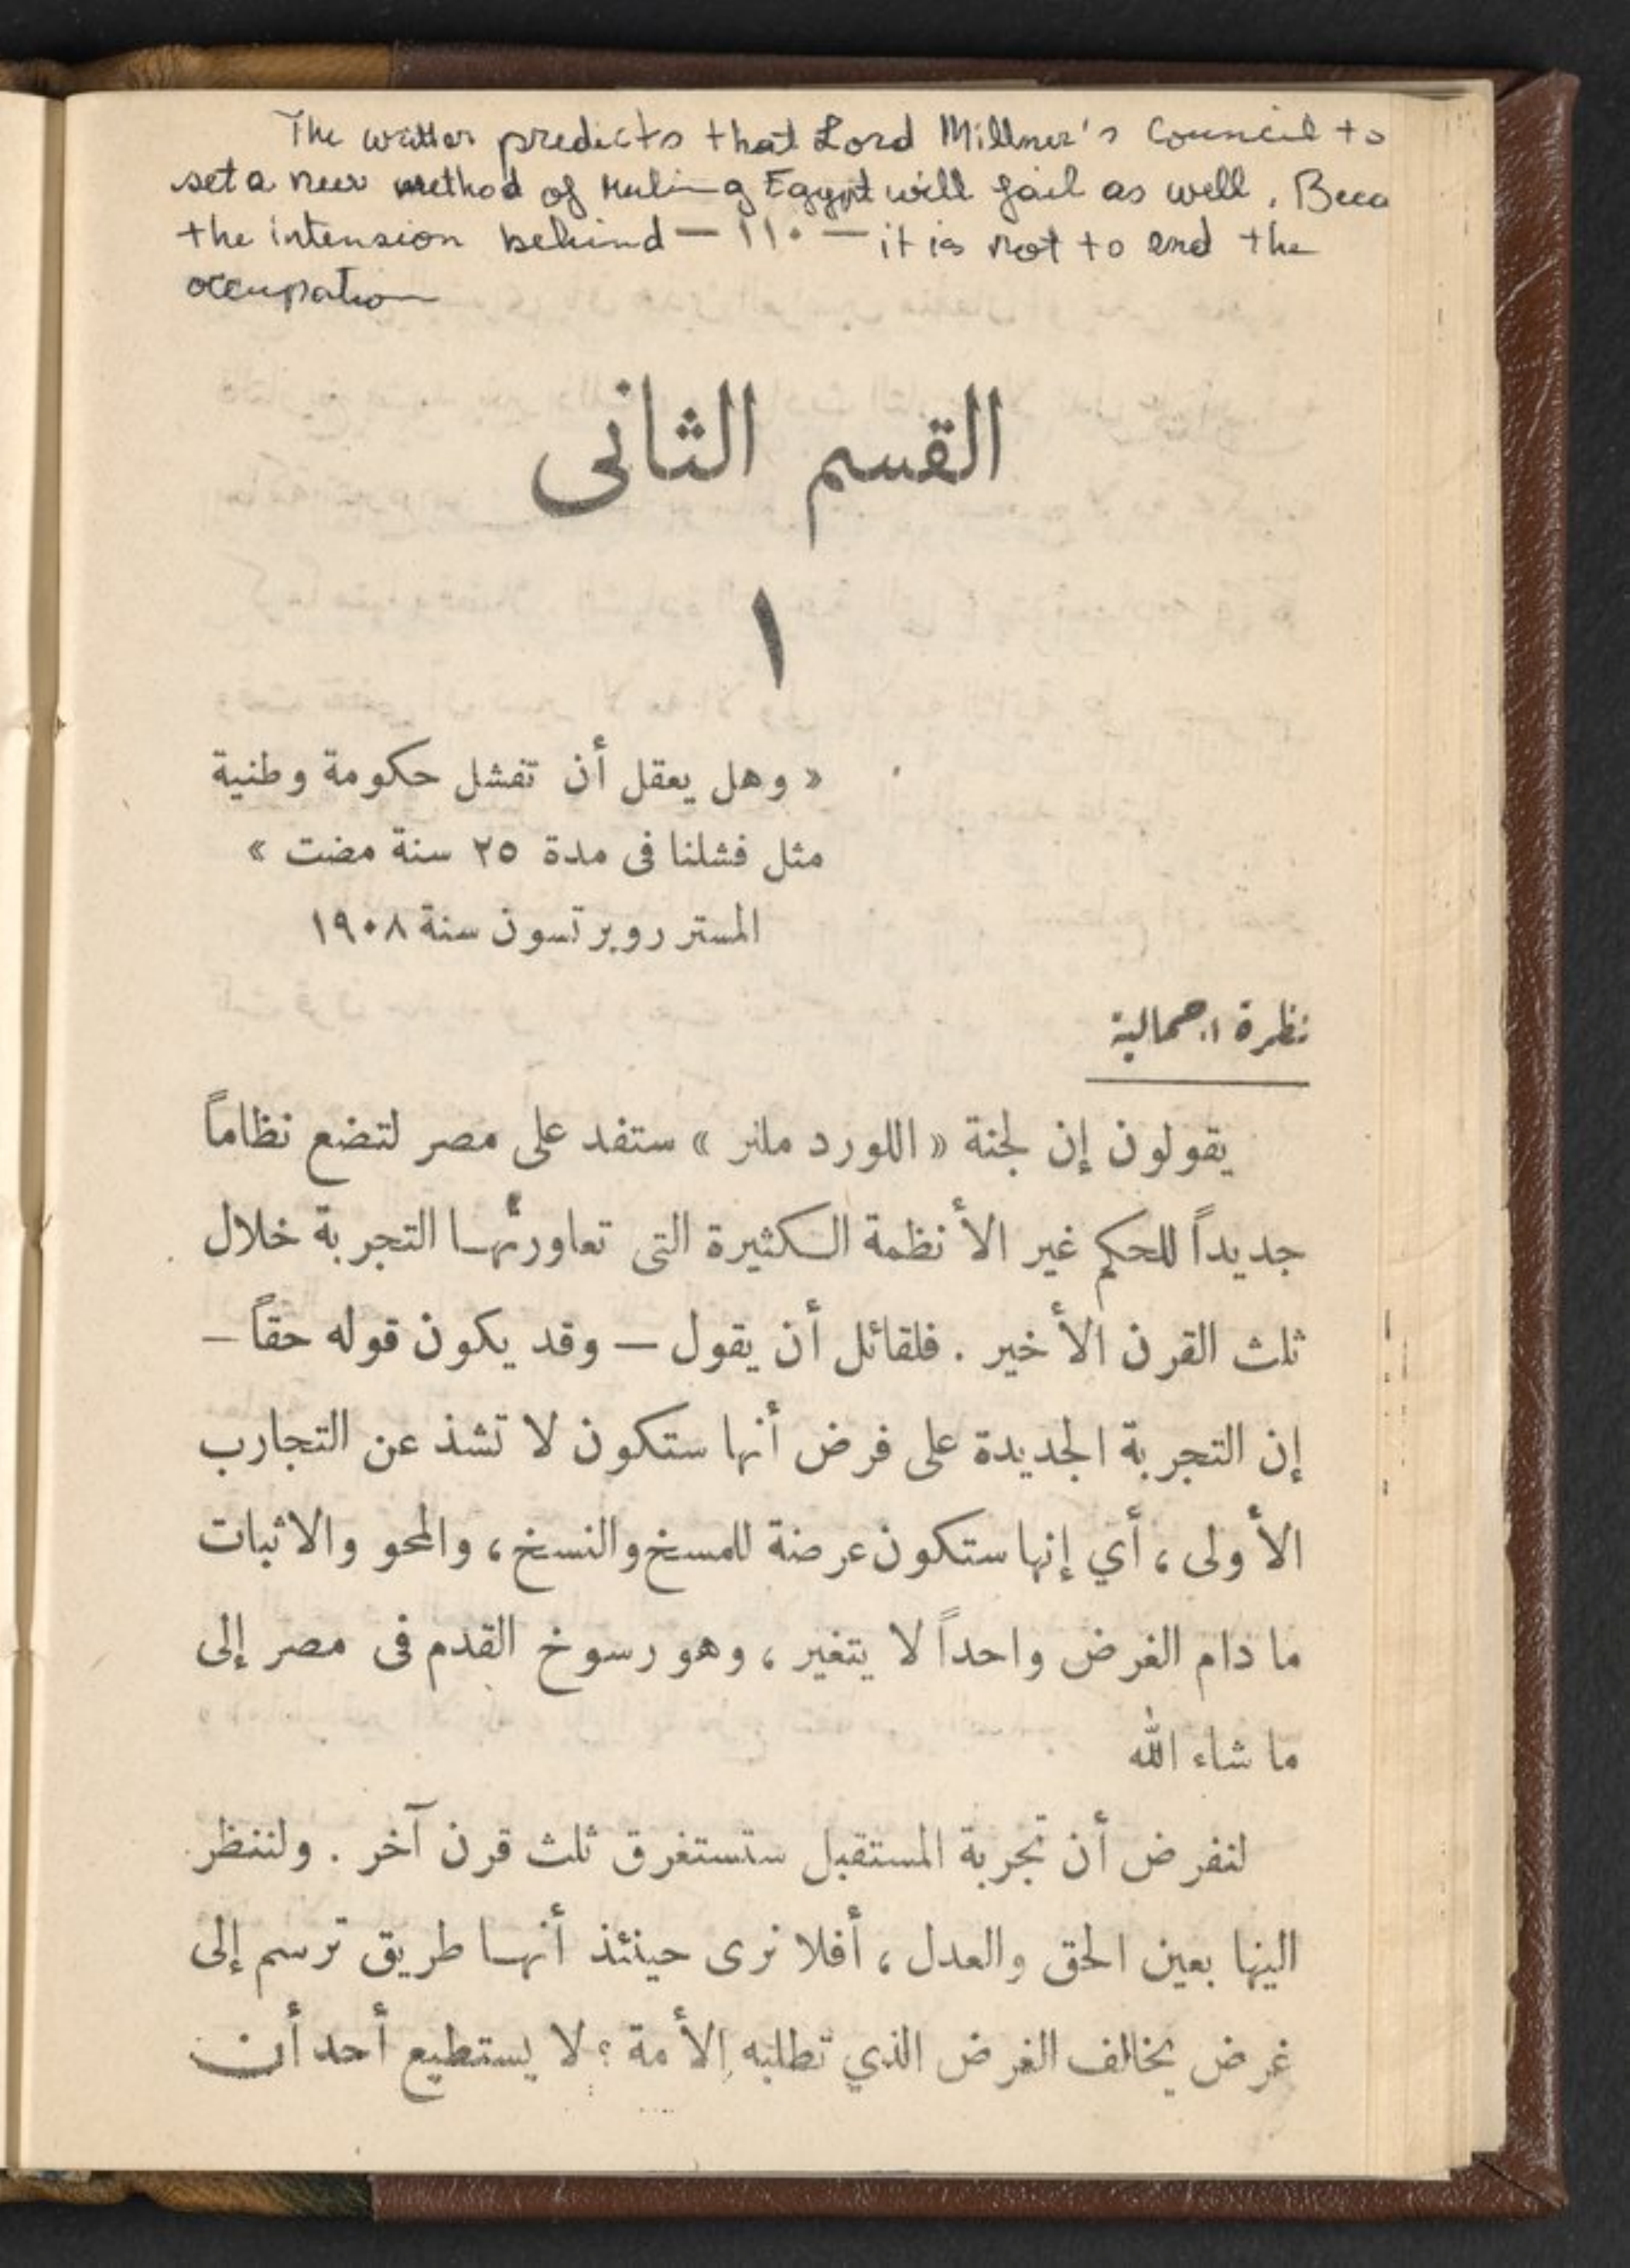 The writter predicts that Lord Millner's Council to
set a new method of ruling Egypt will fail as well. Beca
the intension behind — ١١٠ — it is not to end the
occupation
القسم الثانى
١
« وهل يعقل أن تفشل حكومة وطنية
مثل فشلنا فى مدة ٢٥ سنة مضت »
المستر روبرتسون سنة ١٩٠٨
نظرة اجمالية
يقولون إن لجنة « اللورد ملنر » ستفد على مصر لتضع نظاماً
جديداً للحكم غير الأنظمة الكثيرة التى تعاورتها التجربة خلال
ثلث القرن الأخير . فلقائل أن يقول — وقد يكون قوله حقاً —
إن التجربة الجديدة على فرض أنها ستكون لا تشذ عن التجارب
الأولى ، أي إنها ستكون عرضة للمسخ والنسخ ، والمحو والاثبات
ما دام الغرض واحداً لا يتغير ، وهو رسوخ القدم فى مصر إلى
ما شاء الله
لنفرض أن تجربة المستقبل ستستغرق ثلث قرن آخر . ولننظر
اليها بعين الحق والعدل ، أفلا نرى حينئذ أنها طريق ترسم إلى
غرض يخالف الغرض الذي تطلبه الأمة ؟ لا يستطيع أحد أن